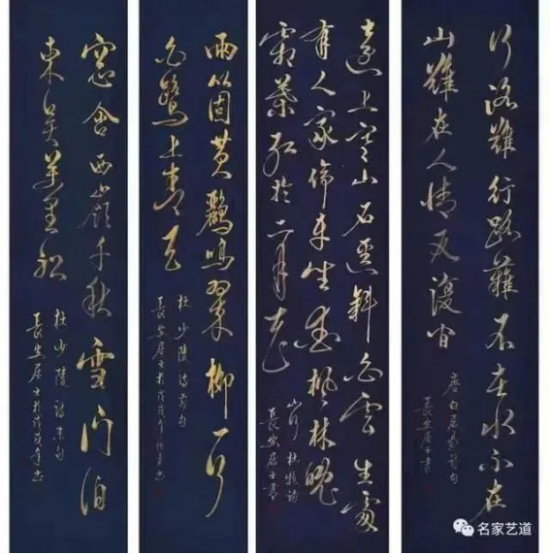 行路難行路難不在水不在
山難在人情反復间
唐白居易诗句
長安居士書
遠上寒山石逕斜白雲生處
有人家停車坐愛楓林晚
霜葉红於二月花
山行杜牧诗
長安居士書
兩箇黄鸝鳴翠柳一行
白鷺上青天
杜少陵诗前句
長安居士於戊戌年
窗含西嶺千秋雪门泊
東吴萬里船
杜少陵诗末句
長安居士於戊戌年
名家艺道